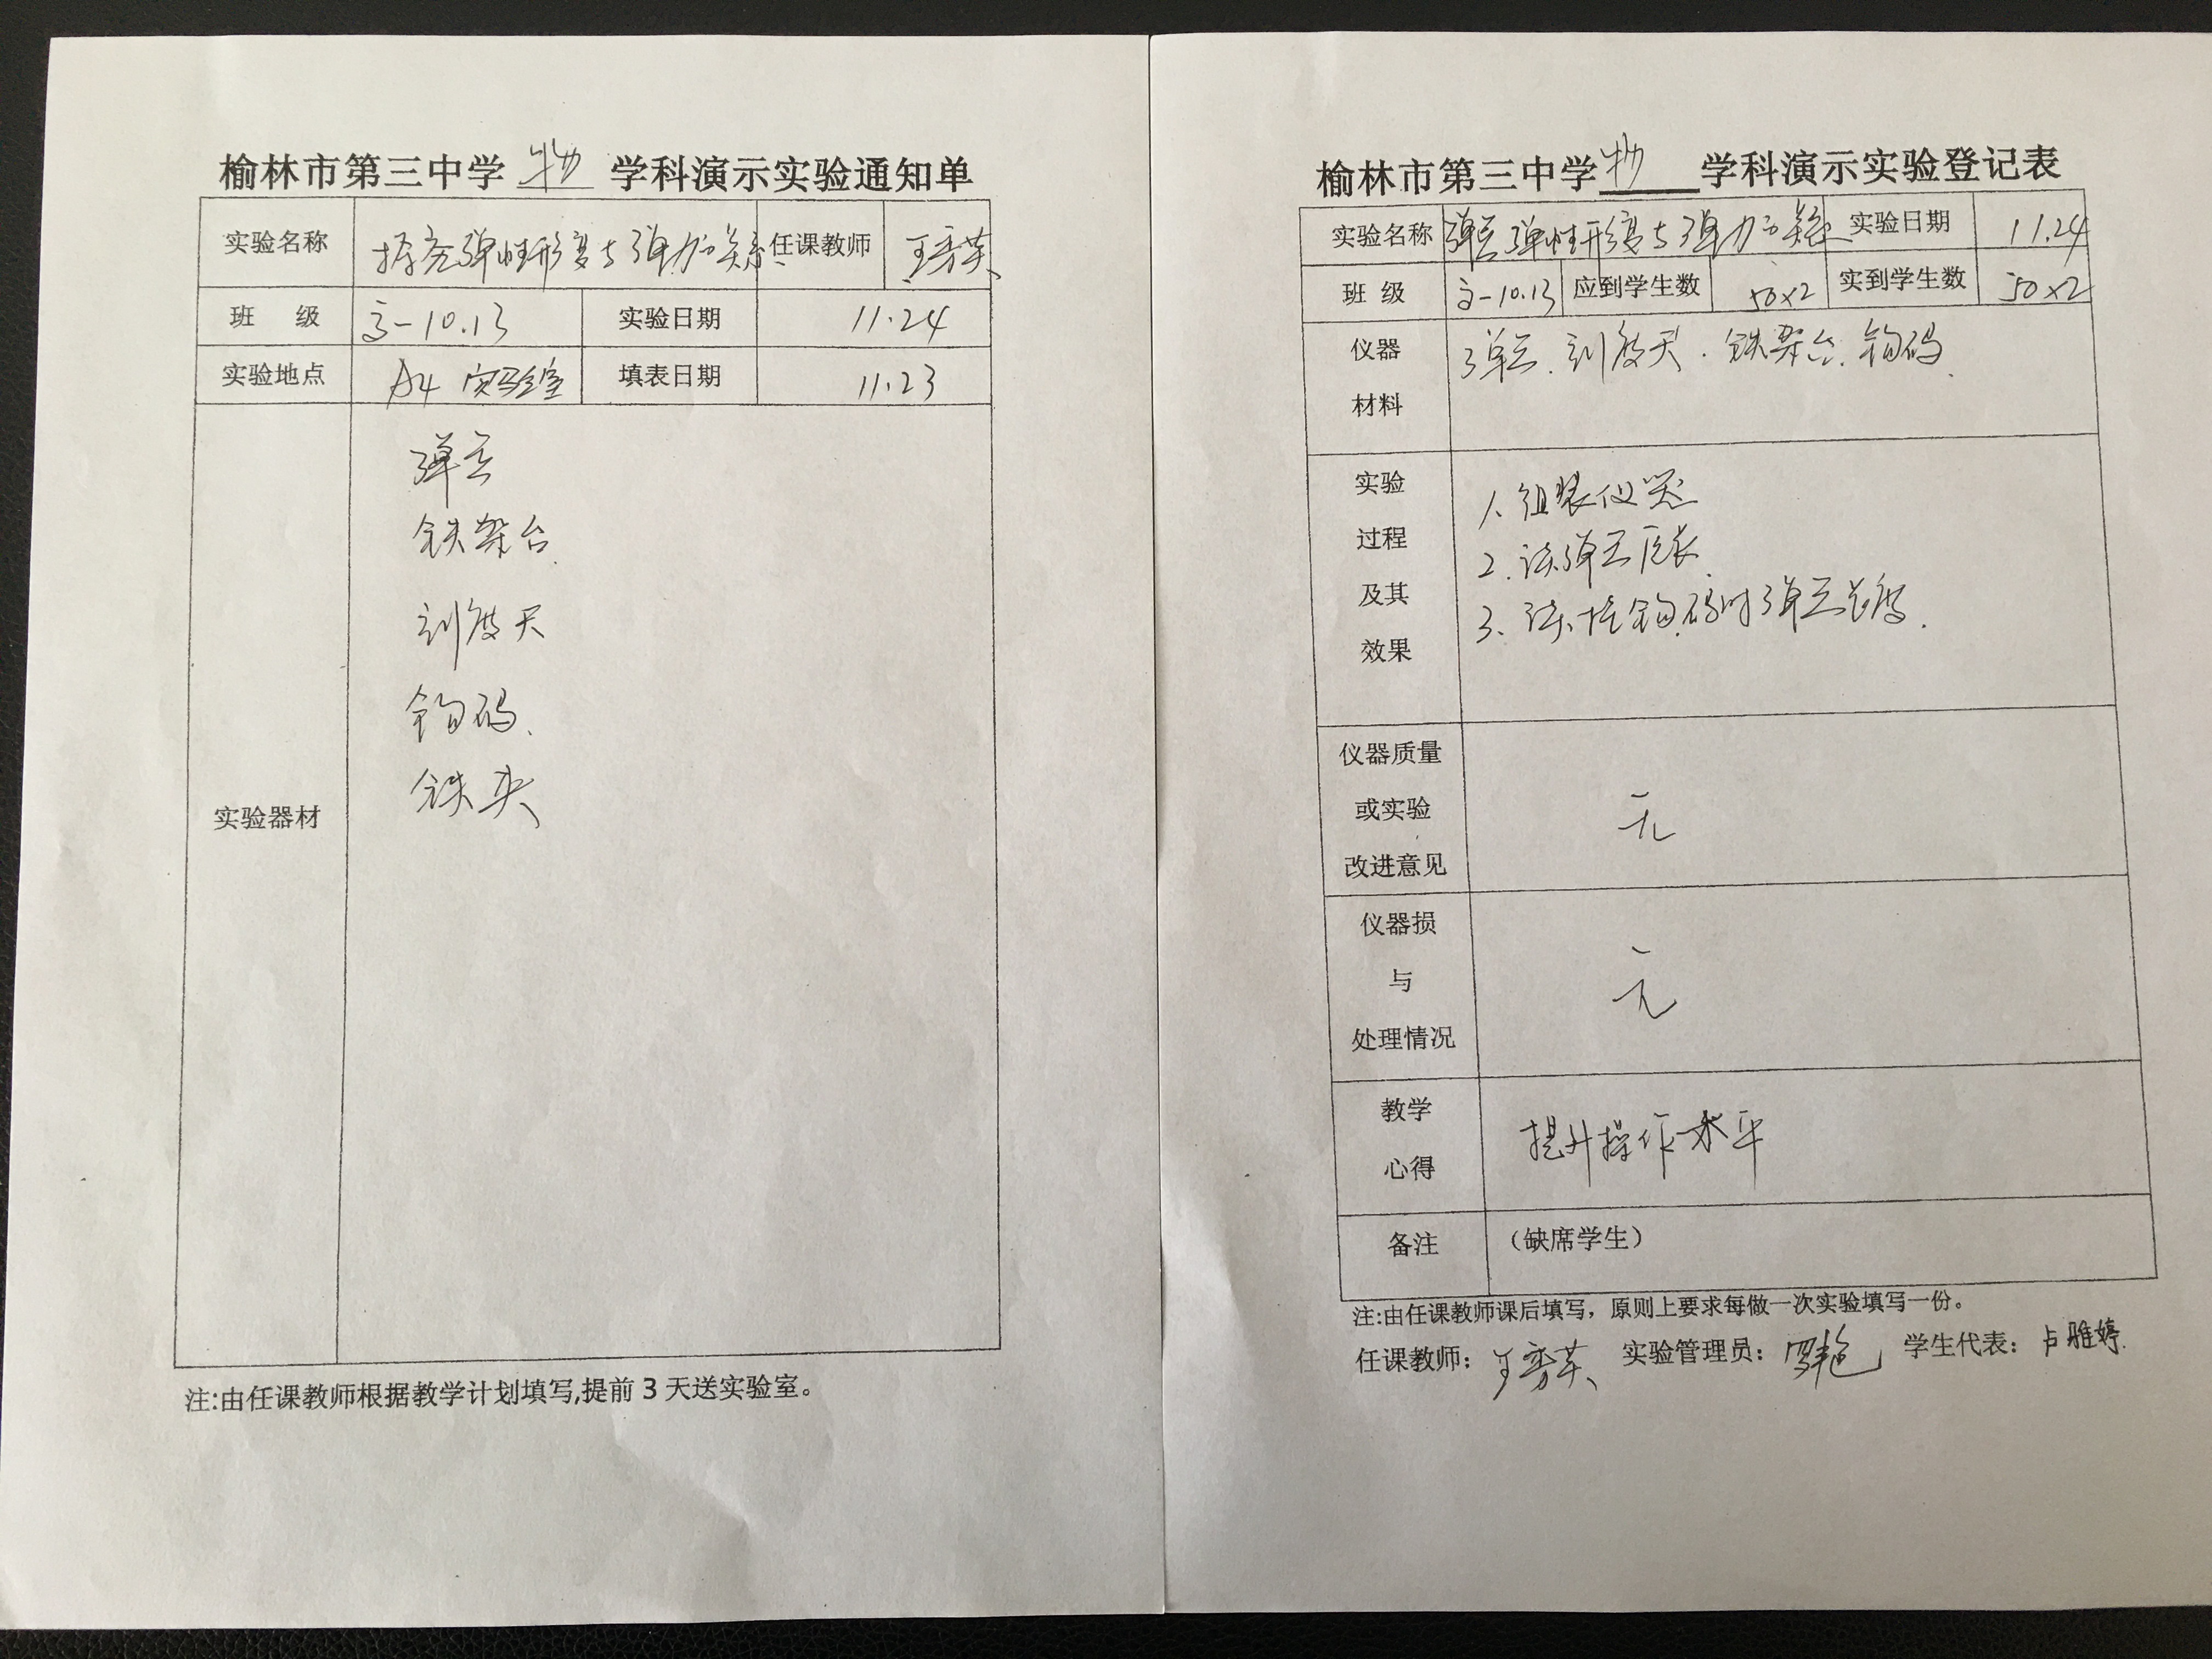 榆林市第三中学 物 学科演示实验通知单
实验名称 探究弹性形变与弹力的关系 任课教师 王秀英
班 级 高一10.13 实验日期 11.24
实验地点 A4 实验室 填表日期 11.23
实验器材
弹云
铁架台
刻度尺
钩码
铁夹
注:由任课教师根据教学计划填写,提前3天送实验室。
榆林市第三中学 物 学科演示实验登记表
实验名称 弹性形变与弹力的关系 实验日期 11.24
班 级 高一10.13 应到学生数 50×2 实到学生数 50×2
仪器材料 刻度尺.铁架台.钩码.
实验过程及其效果
1.组装仪器
2.读弹云原长
3.读挂钩码时弹云长度.
仪器质量或实验改进意见 无
仪器损与处理情况 无
教学心得 提升操作水平
备注 （缺席学生）
注:由任课教师课后填写，原则上要求每做一次实验填写一份。
任课教师：王秀英 实验管理员：罗艳 学生代表：卢雅婷